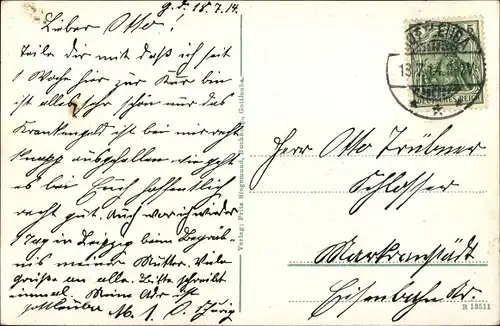 g. d. 18.7.14.
Lieber Otto!
Teile Dir mit daß ich seit
1 Woche hier zur Kur bin
ist alles sehr schön nur das
Krankengeld ist bei mir recht
knapp ausgefallen wie geht
es bei Euch hoffentlich
recht gut. Auch war ich wieder
1 Tag in Leipzig beim Begräb-
nis meiner Mutter. Viele
Grüße an alle. Bitte schreibt
einmal. Meine Adr. ist
Gottleuba M.
Verlag: Fritz Siegemund, Buchhdlg., Gottleuba.
DEUTSCHES REICH
Herrn Otto Trübner
Schlosser
Markranstädt
Eisenbahnstr.
R 13511